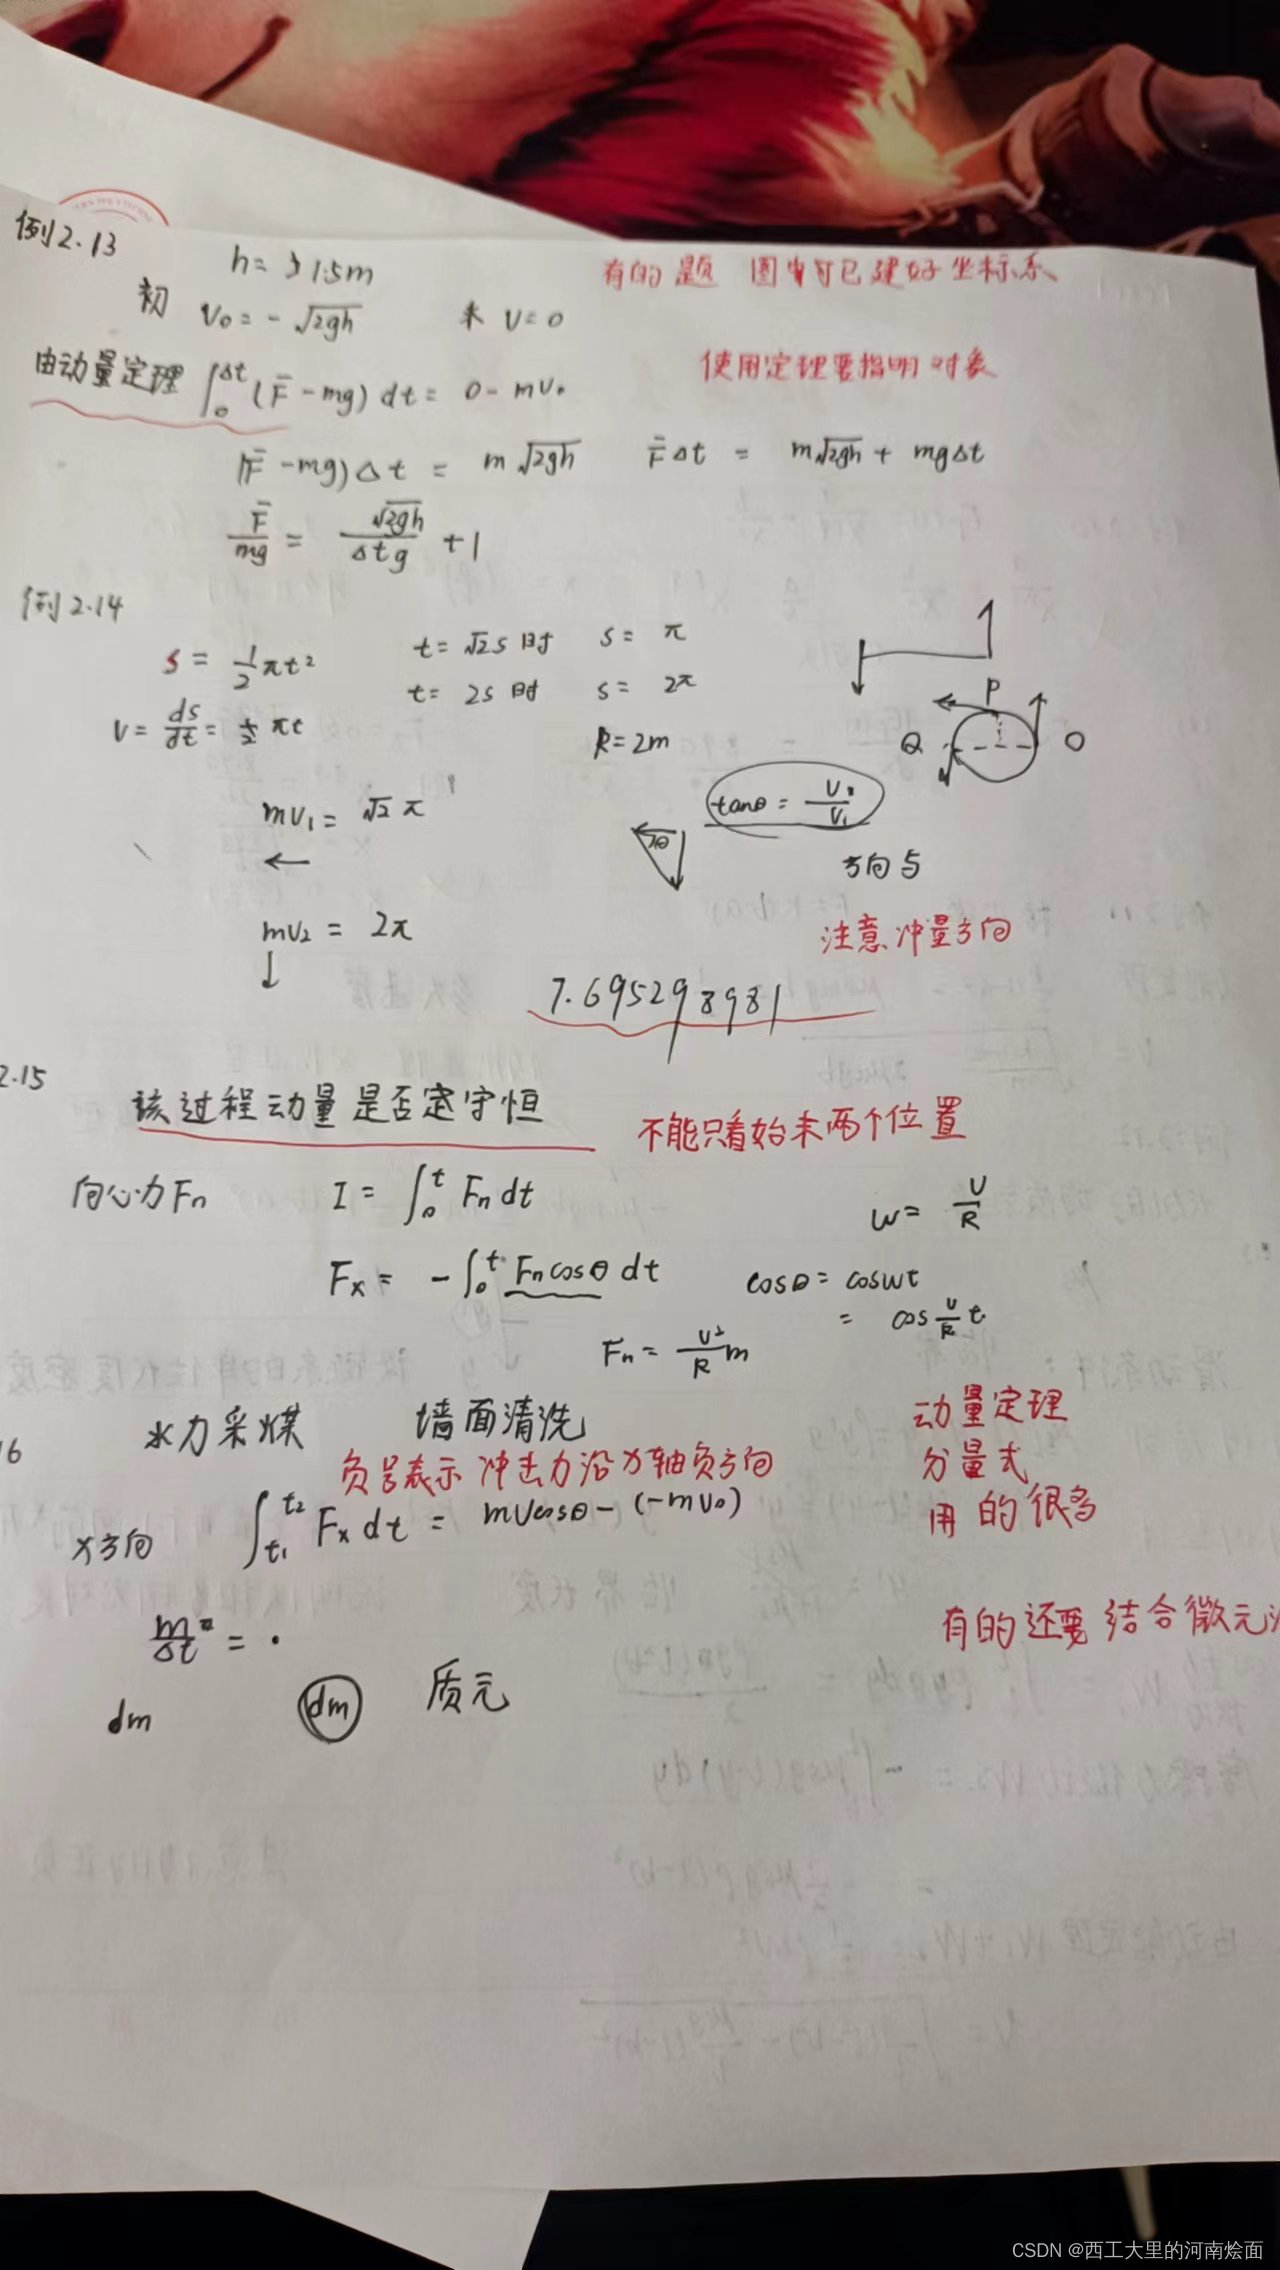 例2.13
h= 1.5m
有的题 图中可已建好坐标系
初 v₀= -√2gh 末 v=0
使用定理要指明对象
由动量定理 ∫₀^Δt (F̄-mg) dt= 0-mv₀
(F̄-mg)Δt = m√2gh F̄Δt = m√2gh + mgΔt
F̄/mg = √2gh/Δtg +1
例2.14
s= 1/2πt² t=√2s时 s= π
t= 2s时 s= 2π
v= ds/dt= πt
R=2m
P
Q O
mv₁= √2π
←
tanθ= v₂/v₁
θ
方向与
mv₂ = 2π
↓
注意冲量方向
7.695298981
2.15
该过程动量是否守恒
不能只看始末两个位置
向心力Fn I= ∫₀^t Fn dt
w= v/R
Fx= -∫₀^t Fncosθ dt cosθ= coswt
= cos v/R t
Fn= v²/R m
16
水力采煤 墙面清洗
动量定理
分量式
用的很多
负号表示冲击力沿x轴负方向
x方向 ∫t₁^t₂ Fx dt = mvcosθ-(-mv₀)
有的还要结合微元
m/Δt = ·
dm dm 质元
CSDN @西工大里的河南烩面